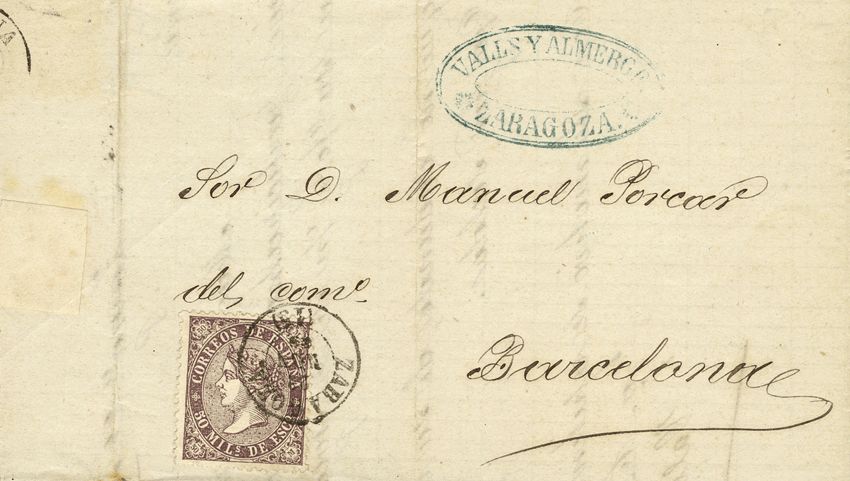 VALLS Y ALMERG
ZARAGOZA.
Sor D. Manuel Porcar
del comº
Barcelona
CORREOS DE ESPAÑA
50 MILS DE ESC
ZARA